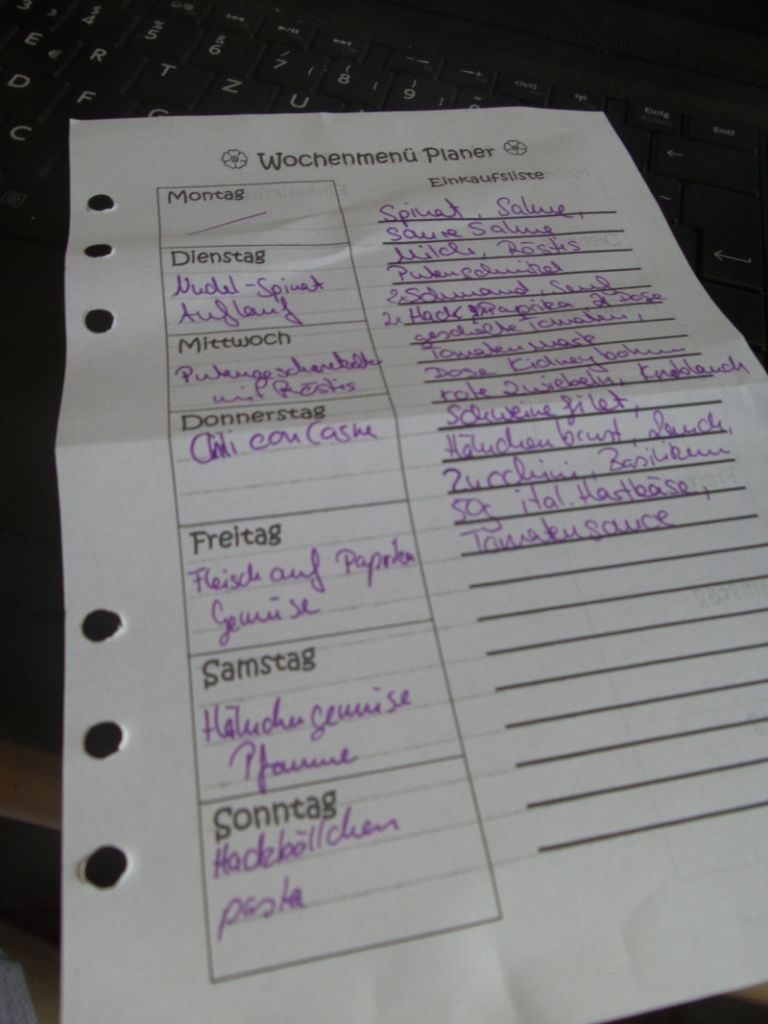 Wochenmenü Planer
Montag
Dienstag
Nudel-Spinat
Auflauf
Mittwoch
Putengeschnetzeltes
mit Röstis
Donnerstag
Chili con Carne
Freitag
Fleisch auf Paprika
Gemüse
Samstag
Hähnchengemüse
Pfanne
Sonntag
Hackbällchen
pasta
Einkaufsliste
Spinat, Sahne,
Saure Sahne
Milch, Röstis
Putenschnitzel
2x Schmand, Senf
2x Hack, Paprika 2x Dose
geschälte Tomaten,
Tomatenmark
Dose Kidneybohnen
rote Zwiebeln, Knoblauch
Schweinefilet,
Hähnchenbrust, Lauch,
Zucchini, Basilikum
50g ital. Hartkäse,
Tomatensauce